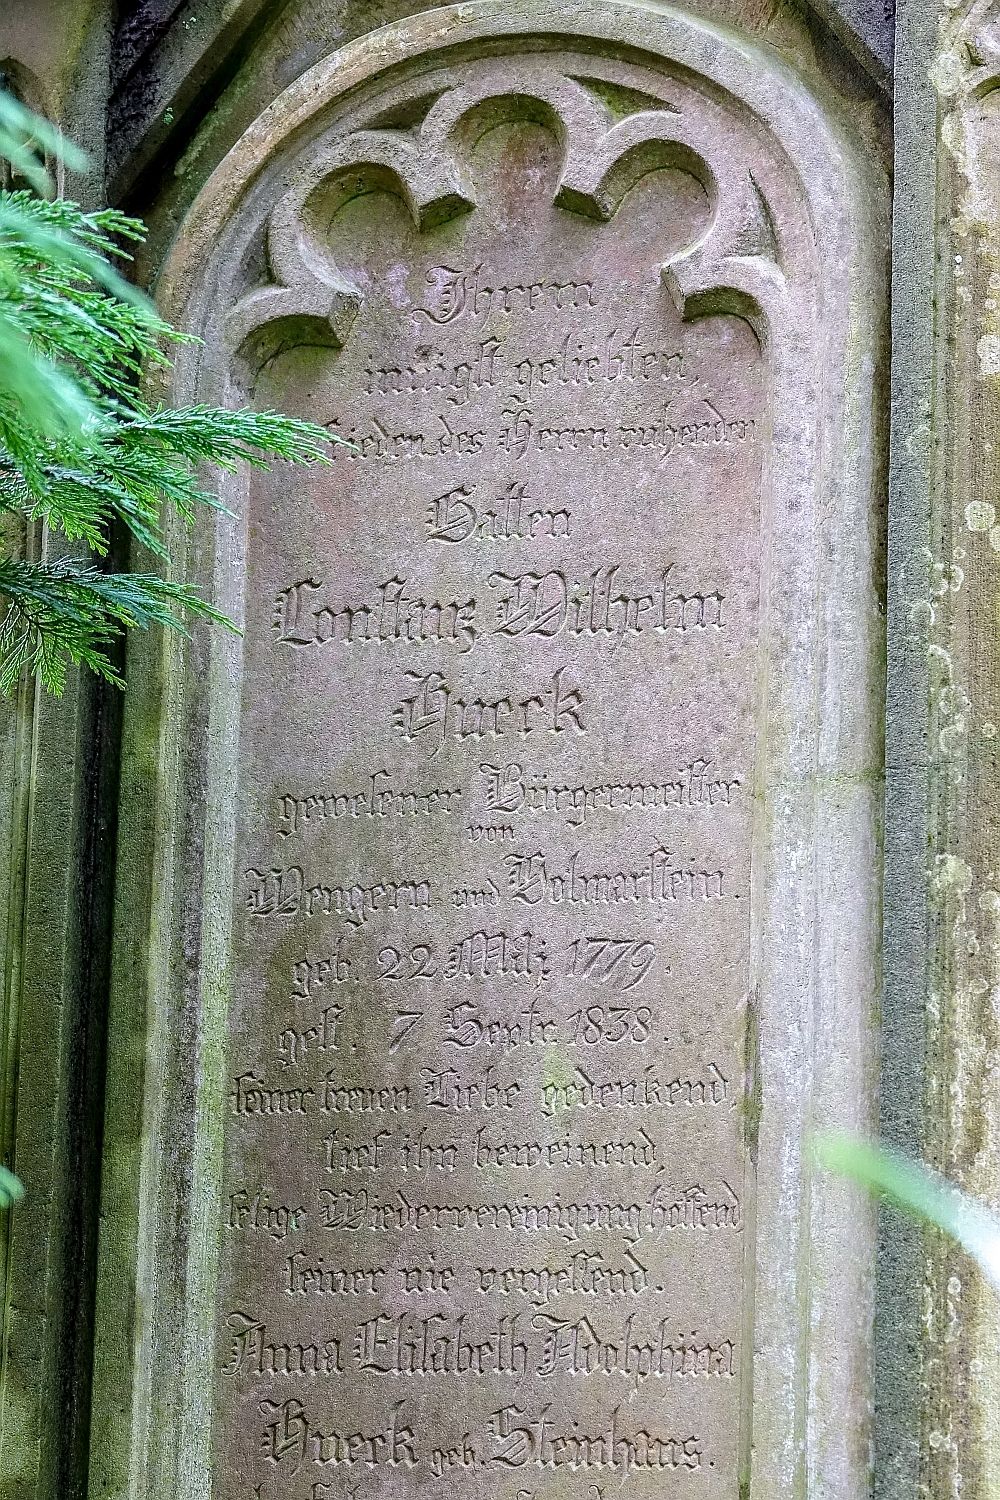 Ihrem
innigst geliebten,
Frieden des Herrn ruhenden
Gatten
Constanz Wilhelm
Hueck
gewesener Bürgermeister
von
Wengern und Volmarstein.
geb. 22 März 1779.
gest. 7 Septr. 1838.
seiner treuen Liebe gedenkend,
tief ihn beweinend,
selige Wiedervereinigung hoffend
seiner nie vergessend.
Anna Elisabeth Adolphina
Hueck geb. Steinhaus.